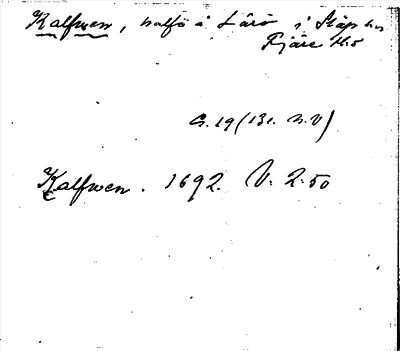 Kalfwen, halfö å Lärö i Släp sn
Fjäre hd
G. 19 (131. N.V)
Kalfwen. 1692. V. 2.50